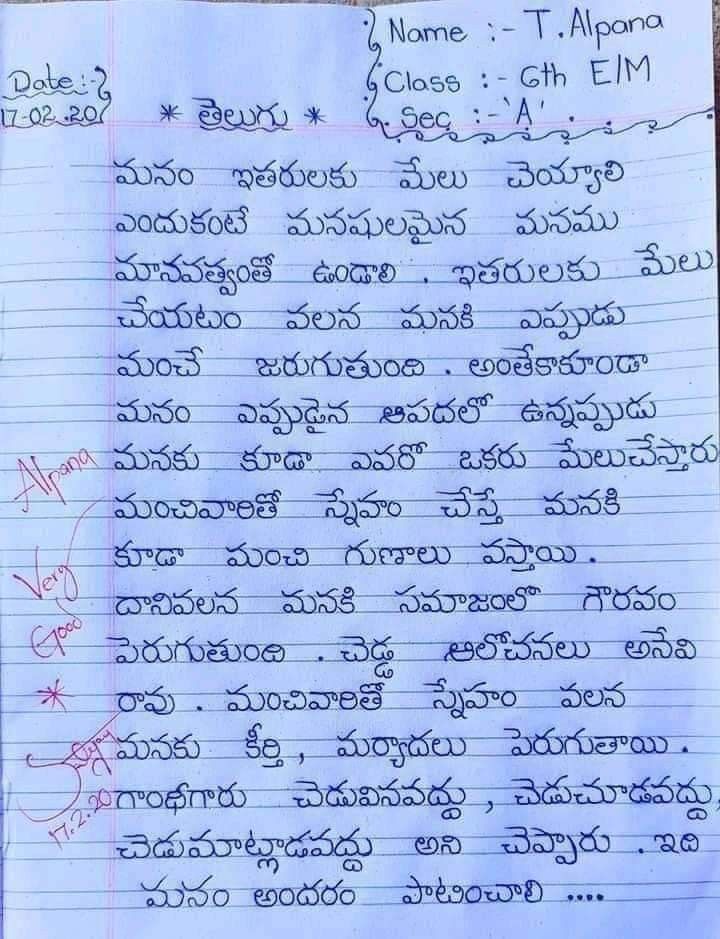 Name :- T. Alpana
Date :-
Class :- 6th E/M
17-02-20
* తెలుగు *
Sec :- 'A'
మనం ఇతరులకు మేలు చెయ్యాలి
ఎందుకంటే మనషులమైన మనము
మానవత్వంతో ఉండాలి . ఇతరులకు మేలు
చేయటం వలన మనకి ఎప్పుడు
మంచే జరుగుతుంది . అంతేకాకూండా
మనం ఎప్పుడైన ఆపదలో ఉన్నప్పుడు
మనకు కూడా ఎవరో ఒకరు మేలుచేస్తారు
మంచివారితో స్నేహం చేస్తే మనకి
కూడా మంచి గుణాలు వస్తాయి .
దానివలన మనకి సమాజంలో గౌరవం
పెరుగుతుంది . చెడ్డ ఆలోచనలు అనేవి
రావు . మంచివారితో స్నేహం వలన
మనకు కీర్తి , మర్యాదలు పెరుగుతాయి .
గాంధీగారు చెడువినవద్దు , చెడుచూడవద్దు,
చెడుమాట్లాడవద్దు అని చెప్పారు . ఇది
మనం అందరం పాటించాలి ....
Alpana
Very
Good
*
17.2.20